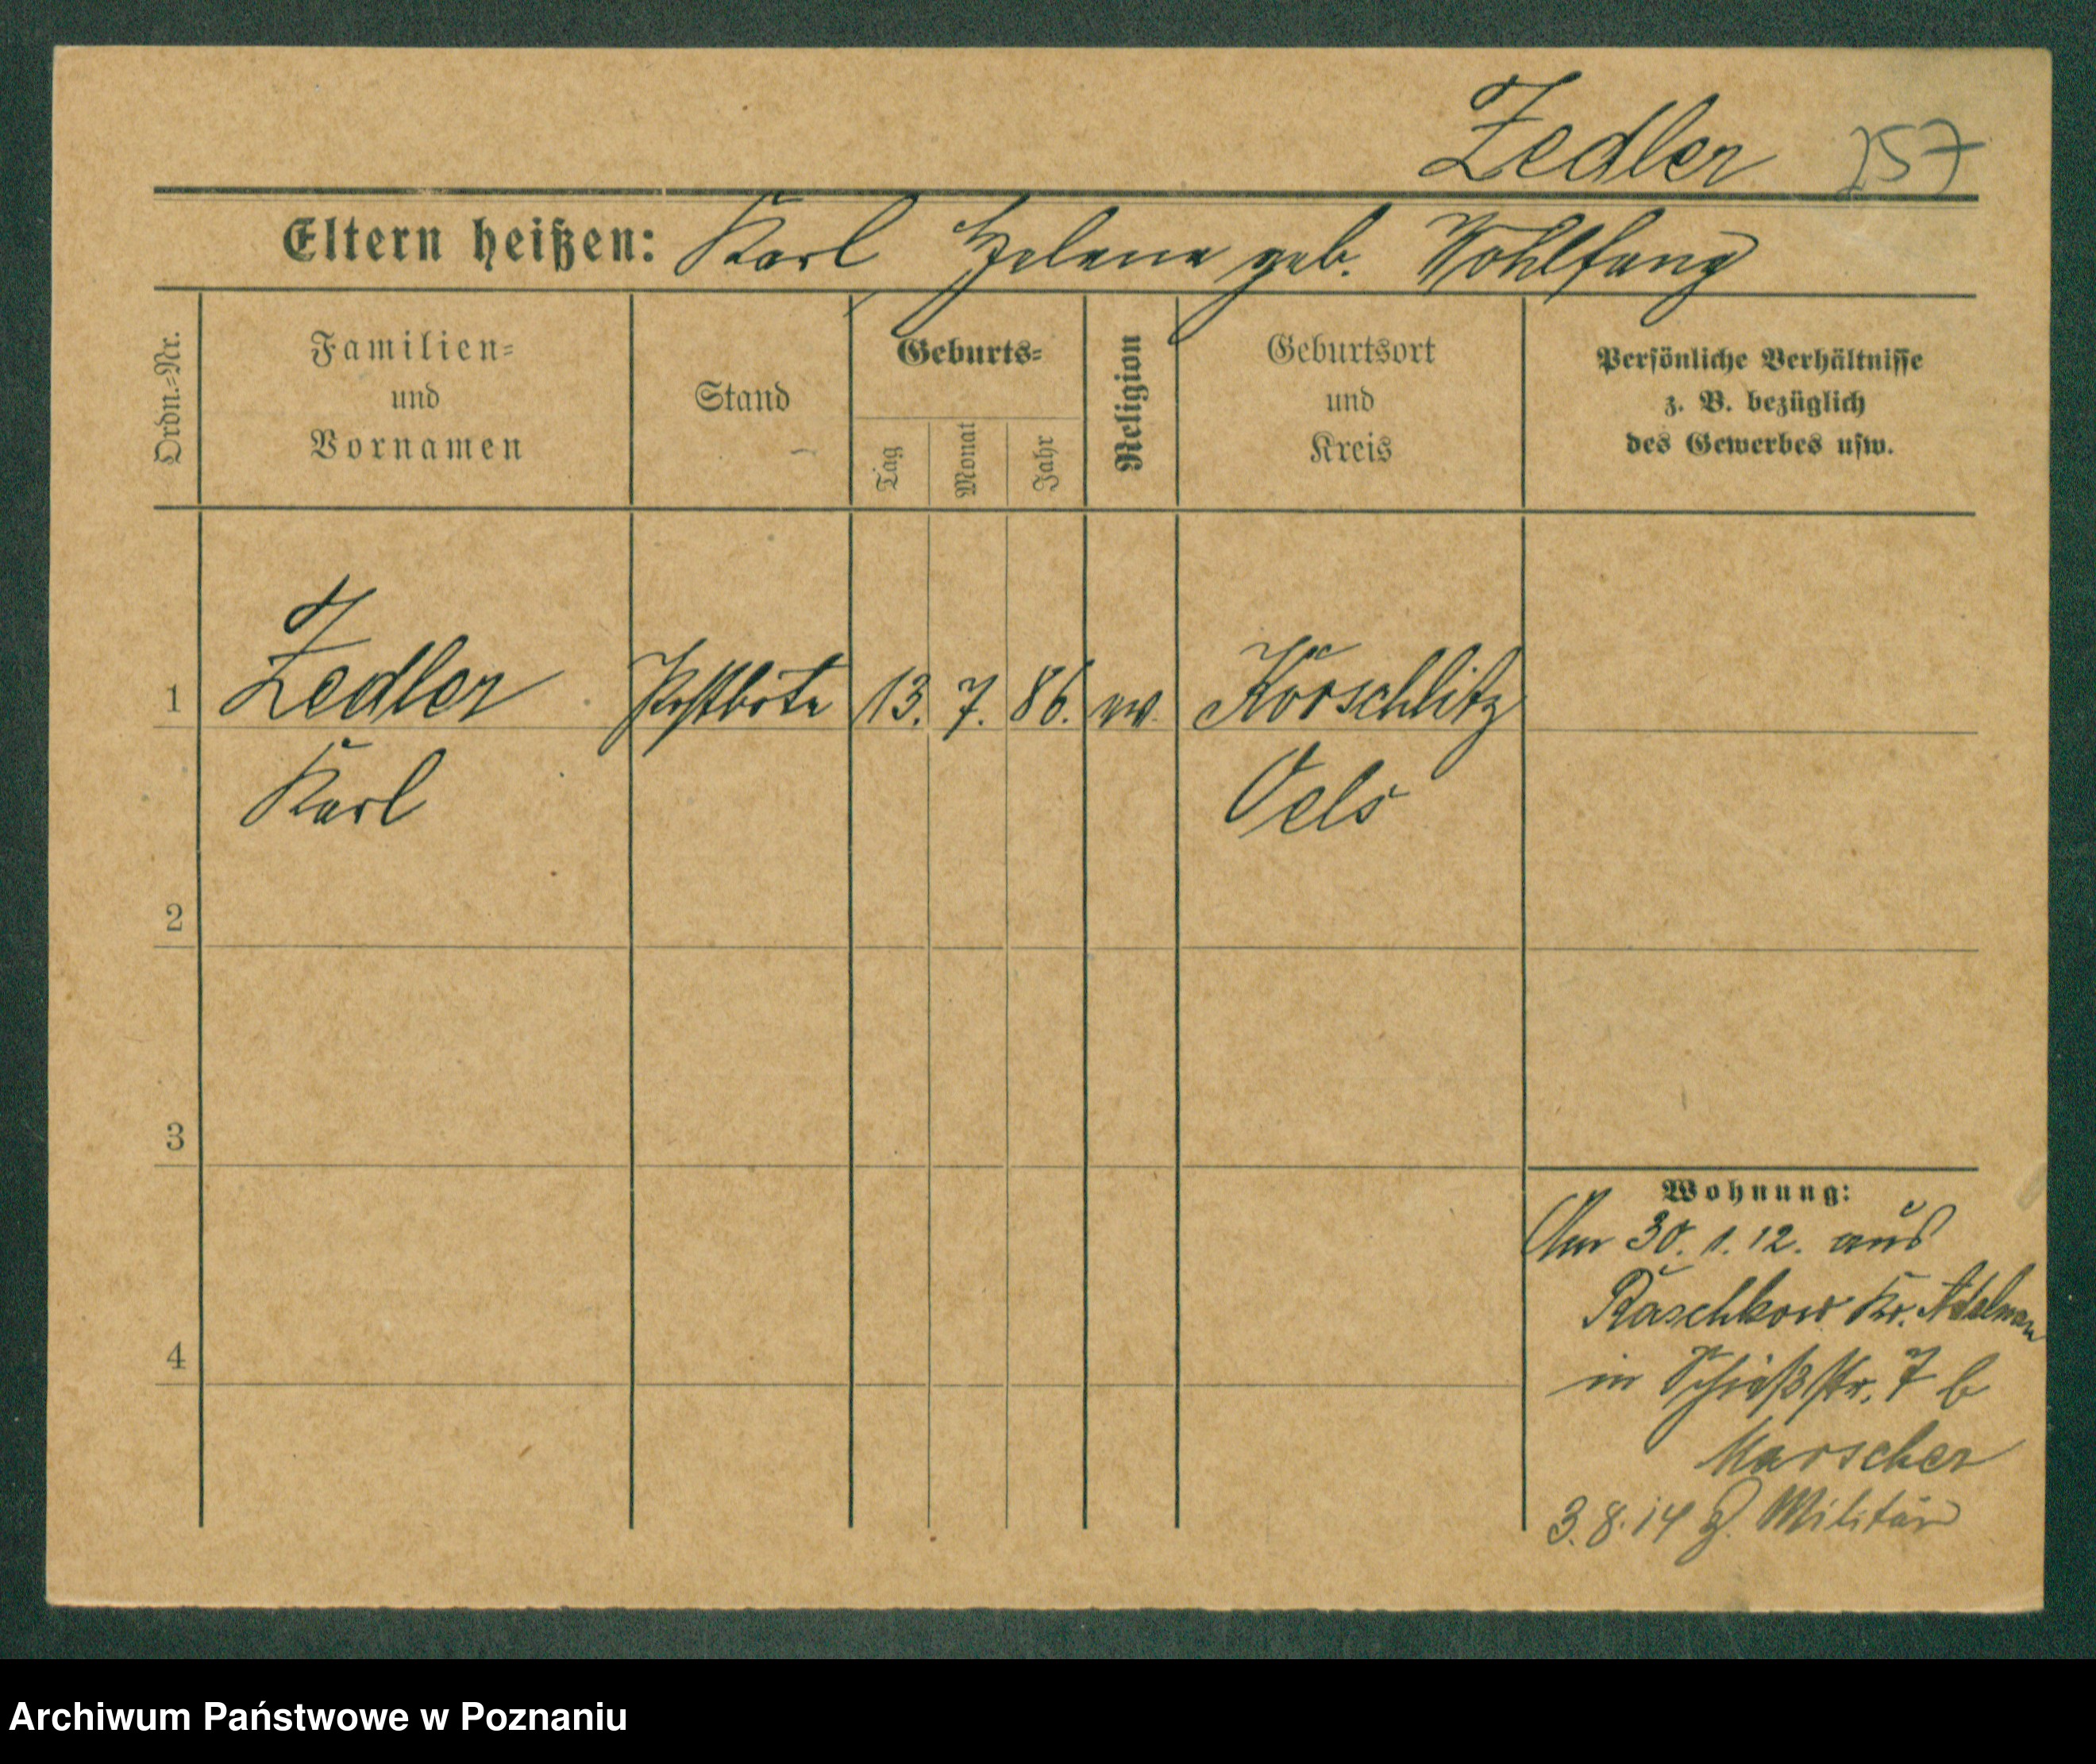 Zedler 257
Eltern heißen: Karl Helene geb. Wohlfang
Ordn.-Nr.
Familien-
und
Vornamen
Stand
Geburts-
Tag
Monat
Jahr
Religion
Geburtsort
und
Kreis
Persönliche Verhältnisse
z. B. bezüglich
des Gewerbes usw.
1 Zedler Postbote 13. 7. 86. ev. Korschlitz
Karl Oels
2
3
4
Wohnung:
Am 30. 1. 12. aus
Raschkow Kr. Adelnau
in Schießstr. 7 b
Marscher
3.8.14 z. Militär
Archiwum Państwowe w Poznaniu